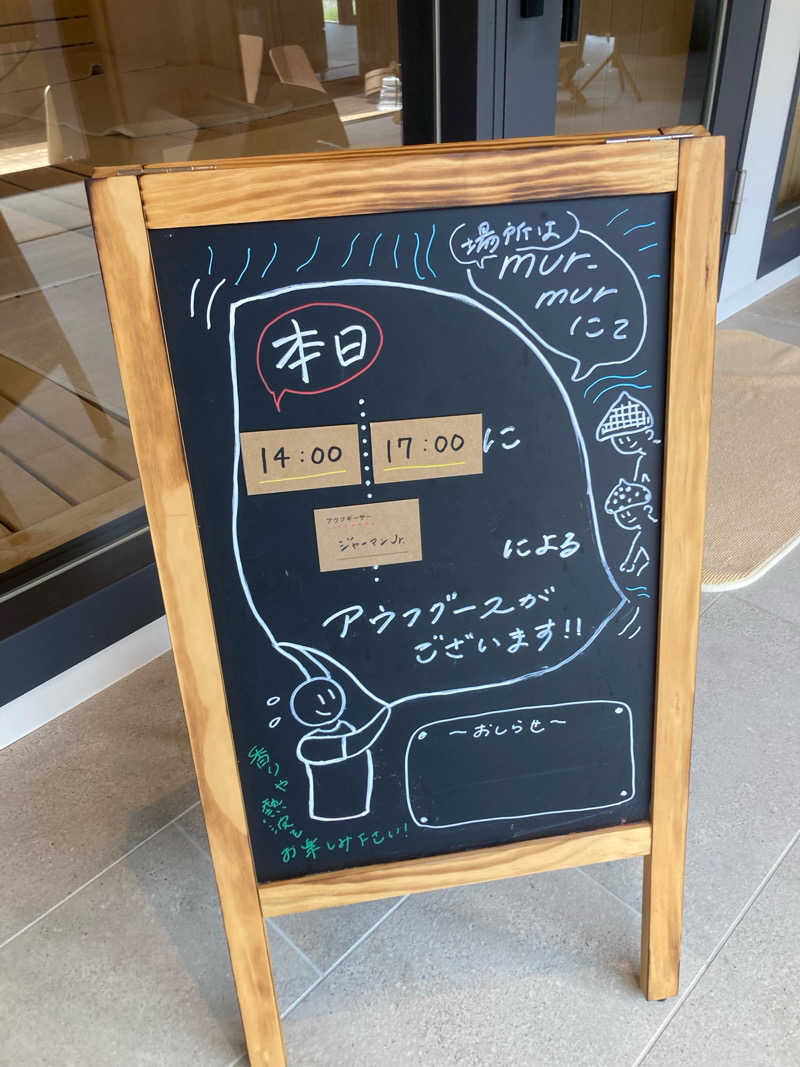 場所は
mur-
mur
にて
本日
14:00
17:00
に
アウフギーサー
ジャーマンJr.
による
アウフグースが
ございます!!
～おしらせ～
香りや
熱波を
お楽しみ下さい!